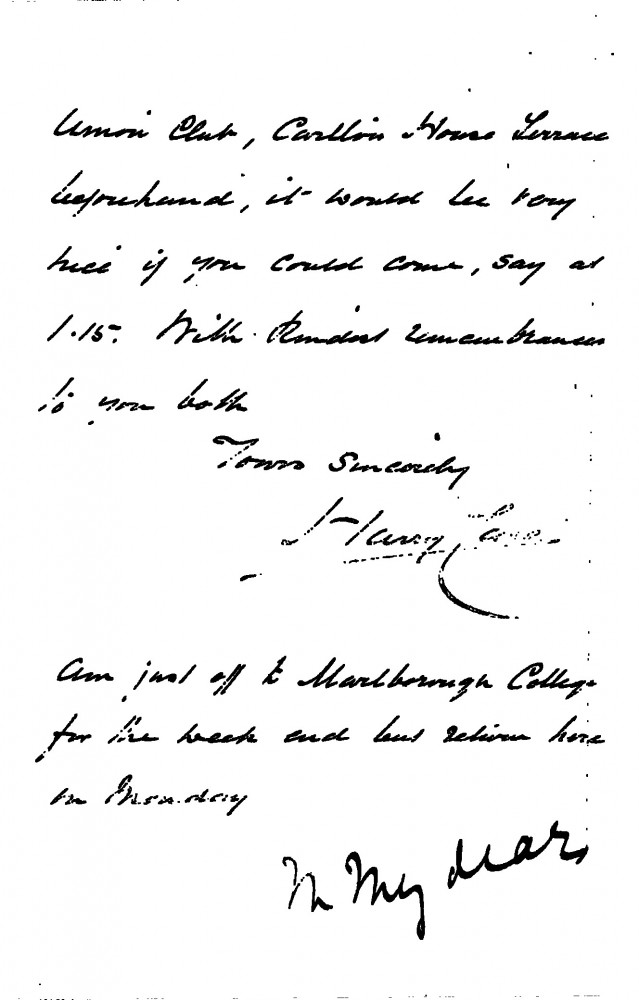 Union Club, Carlton House Terrace
beforehand, it would be very
nice if you could come, say at
1.15. With kindest remembrances
to you both
Yours sincerely
Harry
Am just off to Marlborough College
for the week end but return here
on Monday
My dear